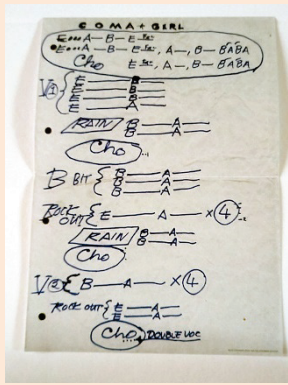 COMA + GIRL
E A — B — E
E A — B — E , A — , B — BABA
Cho E , A — , B — BABA
V① { E — B —
E — B —
E — B —
E — A —
RAIN B — A —
B — A —
Cho ...
B BIT { B — A —
B — A —
B — A —
ROCK OUT { E — A — × ④
RAIN B — A —
B — A —
Cho
V② { B — A — × ④
ROCK OUT { E — A —
E — A —
Cho... DOUBLE VOC